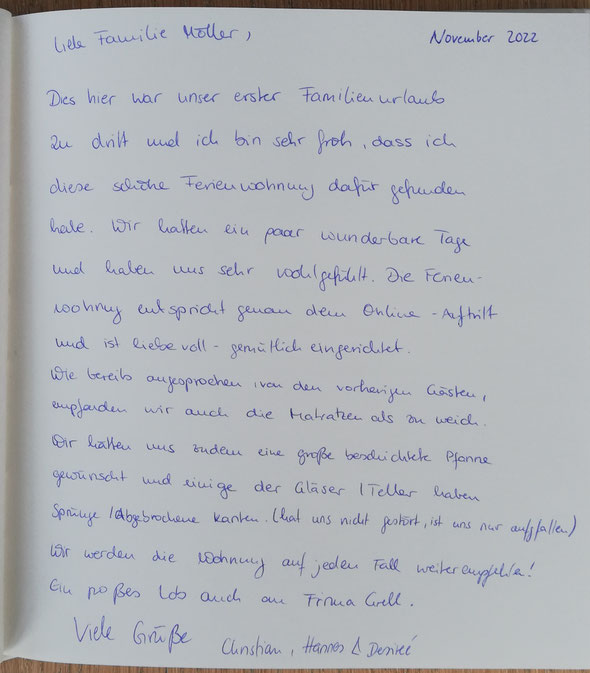 Liebe Familie Möller,
November 2022
Dies hier war unser erster Familienurlaub
zu dritt und ich bin sehr froh, dass ich
diese schöne Ferienwohnung dafür gefunden
habe. Wir hatten ein paar wunderbare Tage
und haben uns sehr wohlgefühlt. Die Ferien-
wohnung entspricht genau dem Online-Auftritt
und ist liebevoll-gemütlich eingerichtet.
Wie bereits angesprochen, von den vorherigen Gästen,
empfanden wir auch die Matratzen als zu weich.
Wir hätten uns zudem eine große beschichtete Pfanne
gewünscht und einige der Gläser / Teller haben
Sprünge / Abgebrochene Kanten. (hat uns nicht gestört, ist uns nur aufgefallen)
Wir werden die Wohnung auf jeden Fall weiterempfehlen!
Ein großes Lob auch an Firma Grell.
Viele Grüße
Christian, Hannes & Desireé